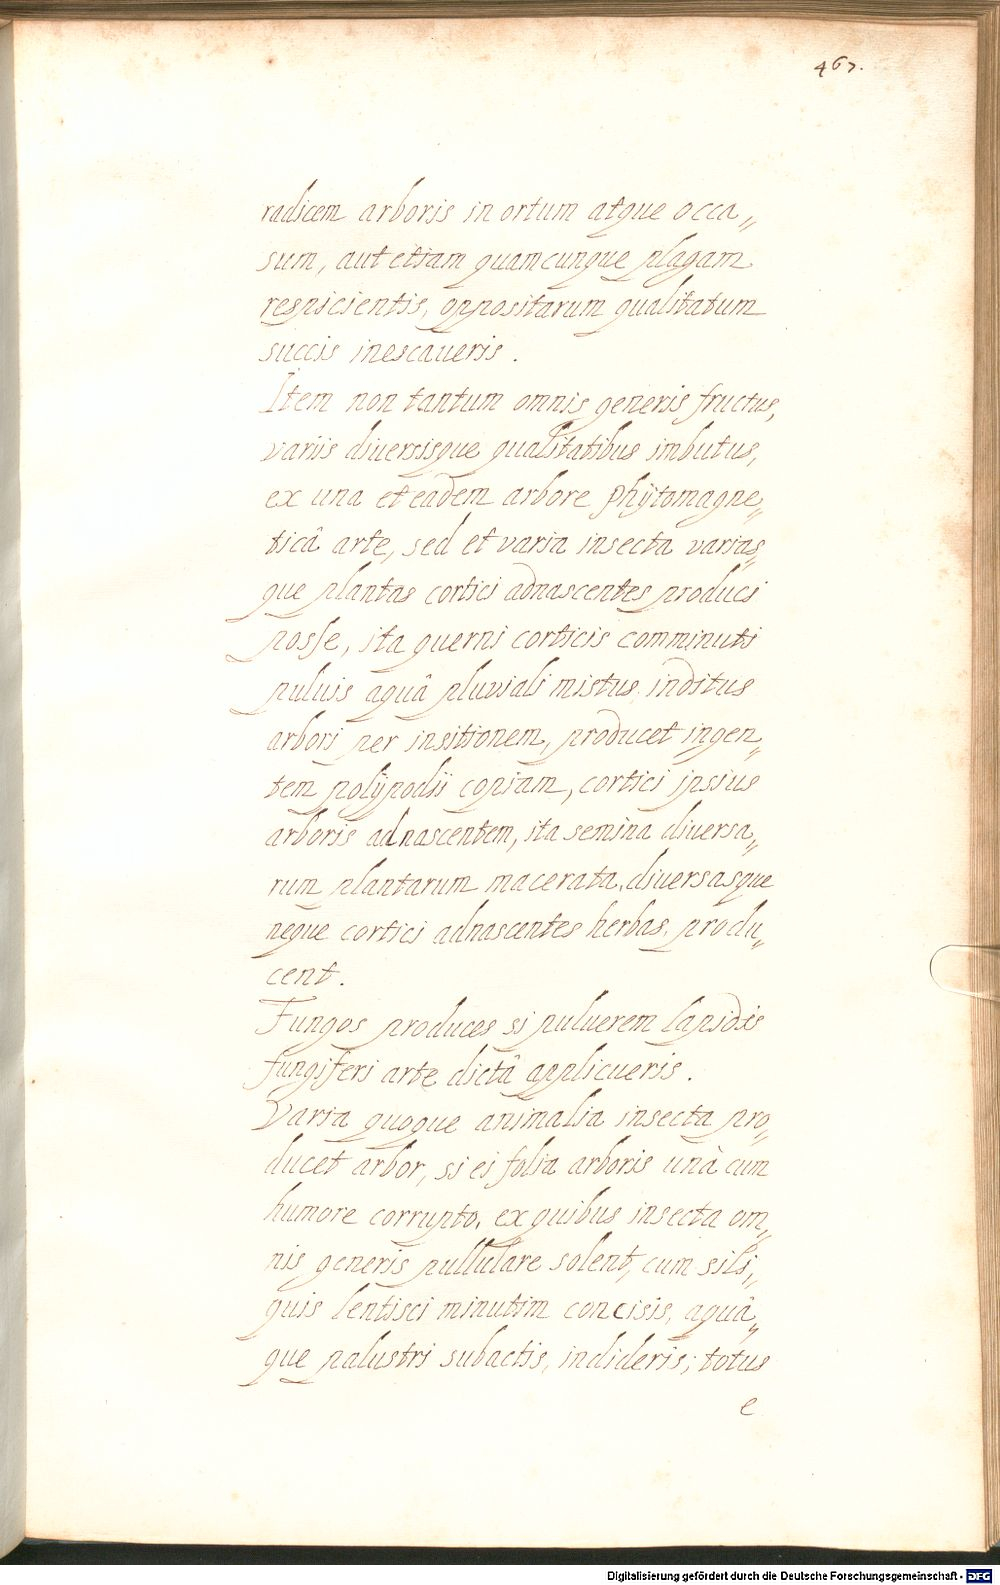 467.
radicem arboris in ortum atque occa„
sum, aut etiam quamcunque plagam
respicientis, oppositarum qualitatum
succis inescaueris.
Item non tantum omnis generis fructus,
variis diuersisque qualitatibus imbutus,
ex una et eadem arbore phÿtomagne„
ticâ arte, sed et varia insecta varias„
que plantas cortici adnascentes produci
posse, ita querni corticis comminuti
puluis aquâ pluviali mistus inditus
arbori per insitionem, producet ingen„
tem polÿpodii copiam, cortici ipsius
arboris adnascentem, ita semina diuersa„
rum plantarum macerata, diuersasque
neque cortici adnascentes herbas produ„
cent.
Fungos produces si puluerem lapidis
fungiferi arte dictâ applicueris.
Varia quoque animalia insecta pro„
ducet arbor, si ei folia arboris unà cum
humore corrupto, ex quibus insecta om„
nis generis pullulare solent, cum sili„
quis lentisci minutim concisis, aquâ„
que palustri subactis, indideris; totus
e
Digitalisierung gefördert durch die Deutsche Forschungsgemeinschaft - DFG